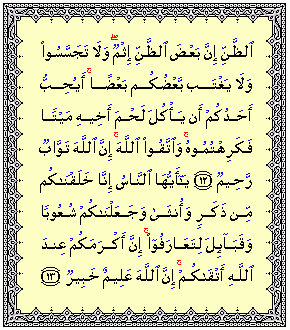 ٱلظَّنِّ إِنَّ بَعْضَ ٱلظَّنِّ إِثْمٌۭ ۖ وَلَا تَجَسَّسُوا۟
وَلَا يَغْتَب بَّعْضُكُم بَعْضًا ۚ أَيُحِبُّ
أَحَدُكُمْ أَن يَأْكُلَ لَحْمَ أَخِيهِ مَيْتًۭا
فَكَرِهْتُمُوهُ ۚ وَٱتَّقُوا۟ ٱللَّهَ ۚ إِنَّ ٱللَّهَ تَوَّابٌۭ
رَّحِيمٌۭ ﴿١٢﴾ يَـٰٓأَيُّهَا ٱلنَّاسُ إِنَّا خَلَقْنَـٰكُم
مِّن ذَكَرٍۢ وَأُنثَىٰ وَجَعَلْنَـٰكُمْ شُعُوبًۭا
وَقَبَآئِلَ لِتَعَارَفُوٓا۟ ۚ إِنَّ أَكْرَمَكُمْ عِندَ
ٱللَّهِ أَتْقَىٰكُمْ ۚ إِنَّ ٱللَّهَ عَلِيمٌ خَبِيرٌۭ ﴿١٣﴾